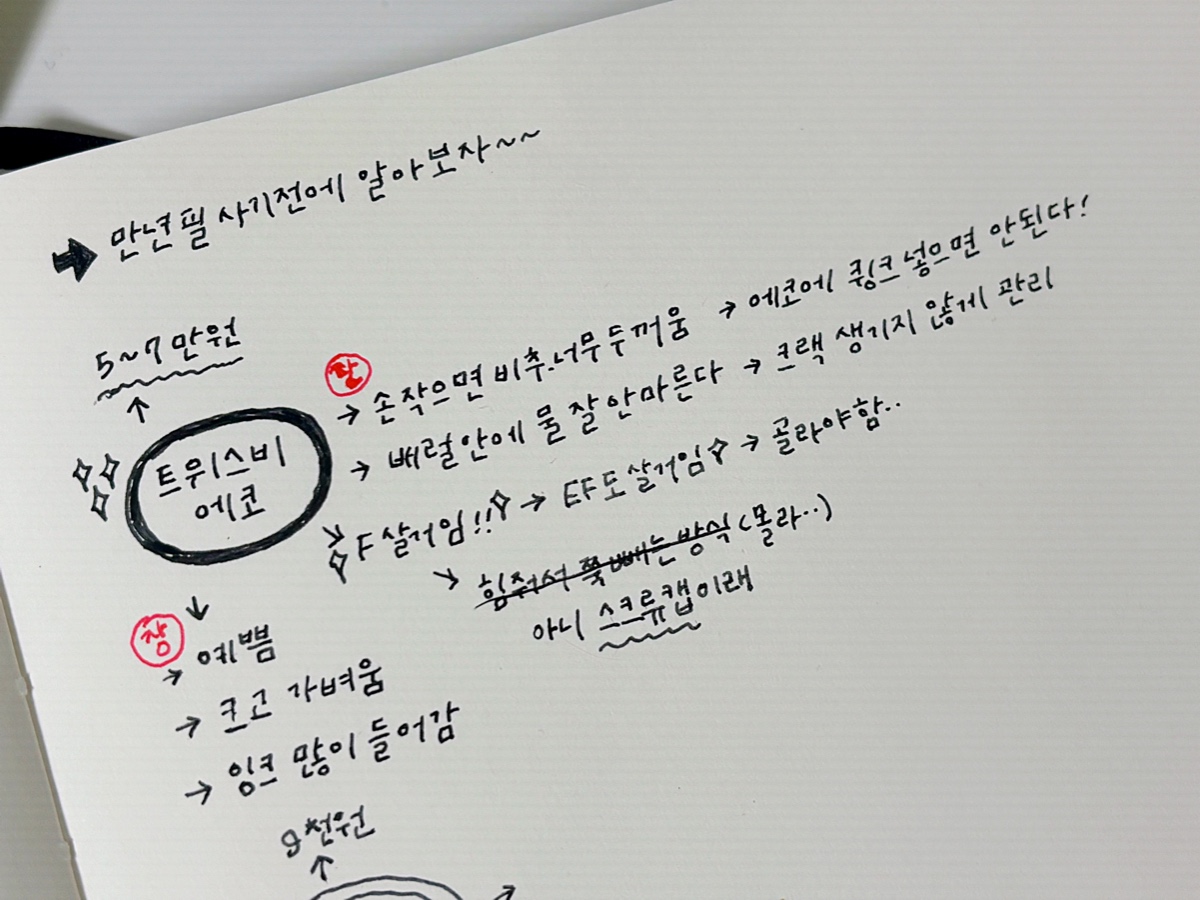 만년필 사기전에 알아보자~~
5~7만원
트위스비
에코
단
손작으면 비추..너무두꺼움 → 에코에 큉크넣으면 안된다!
배럴안에 물 잘 안마른다 → 크랙 생기지 않게 관리
F 살거임!! → EF도 살거임 → 골라야함..
힘줘서 쭉 빼는 방식(몰라..)
아니 스크류캡이래
장
예쁨
크고 가벼움
잉크 많이 들어감
9천원